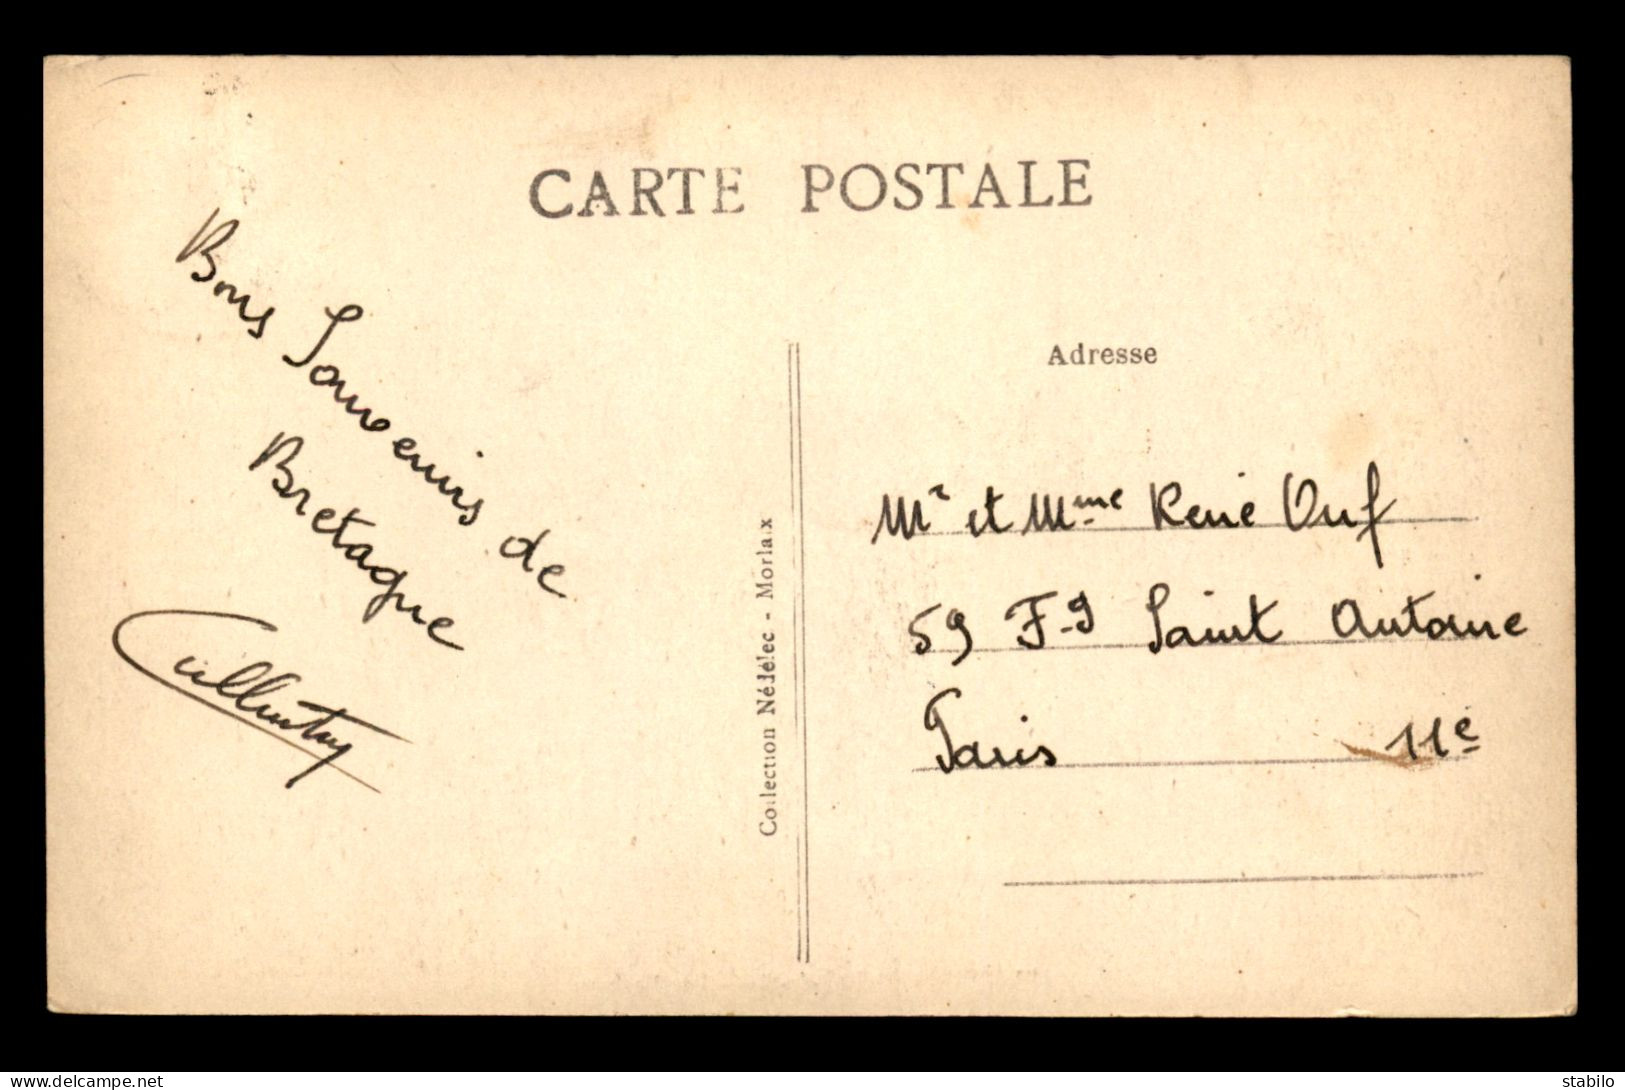 CARTE POSTALE
Bons Souvenirs de
Bretagne
Collection Nédélec - Morlaix
Adresse
Mr et Mme René Ouf
59 F-g Saint Antoine
Paris 11e
delcampe.net
stabilo